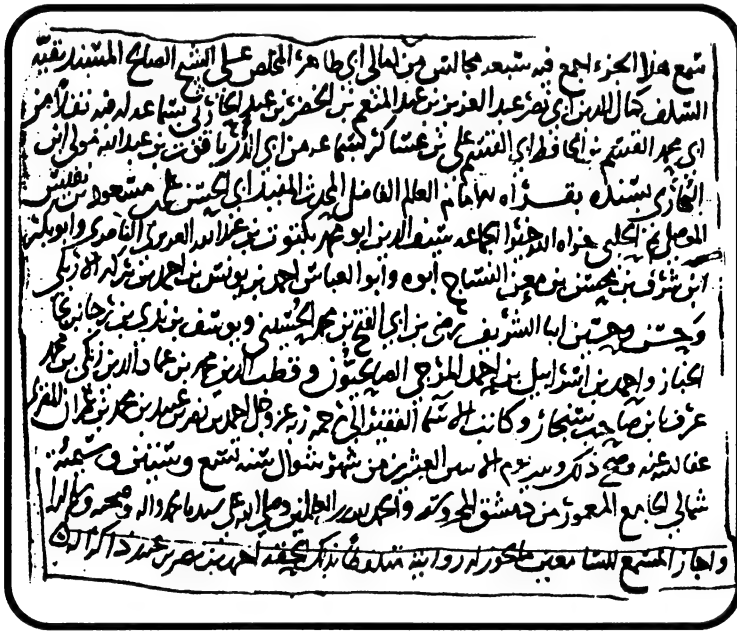 سمع هذا الجزء اجمع فيه سبعة مجالس من امالي ابي طاهر المخلص على الشيخ الصالح المسند بقية
السلف كمال الدين ابي نصر عبد العزيز بن عبد المنعم بن الخضر بن عبد الحارثي بسماعه له فيه نقلا من
ابي محمد القسم بن الحافظ ابي القسم علي بن عساكر بسماعه من ابي الدر ياقوت بن عبد الله مولى ابن
البخاري بسنده بقراءة الامام العالم الفاضل المحدث المفيد ابي الحسن علي بن مسعود بن نفيس
الموصلي ثم الحلبي الجماعة سيف الدين ابو محمد بكتوت بن عبد الله العزيزي الناصري وابو بكر
ابن شرف بن محسن بن معن النساج ابوه وابو العباس احمد بن يونس بن احمد بن بركة الاربلي
وحسن وحسين ابنا الشريف بن ابي الفتح بن محمد الحسيني ويوسف بن
الخباز واحمد بن اسرائيل بن احمد الصالحيون وقطب الدين محمد بن عماد الدين زنكي بن محمد
عرف بابن صاحب سنجار وكاتب الاسما الفقير الى رحمة ربه عز وجل احمد بن نصر بن عبيد بن محمد بن
عفا الله عنه وصح ذلك وثبت يوم الاثنين العشرين من شهر شوال سنة تسع وستين وستمئة
شمالي الجامع المعمور من دمشق المحروسة والحمد لله رب العالمين وصلى الله على سيدنا محمد واله وصحبه وسلم
واجاز المسمع للسامعين ما يجوز له روايته متلفظا بذلك احمد بن نصر بن عبيد